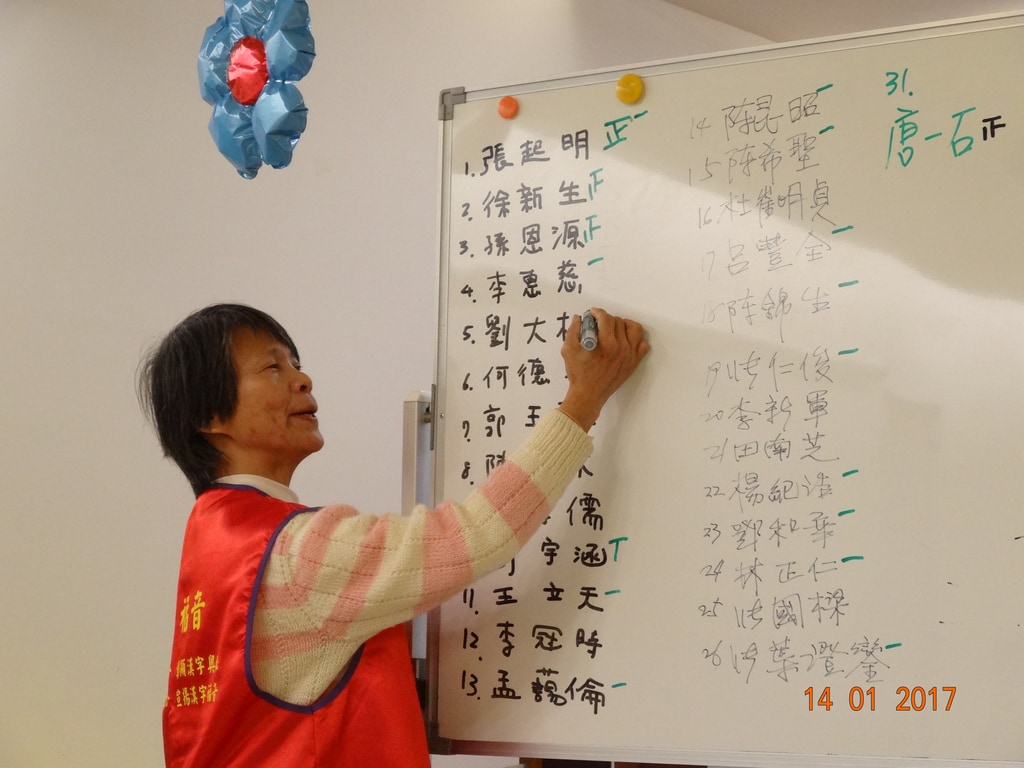 1. 張起明 正一
2. 徐新生 正
3. 孫恩源 正
4. 李惠慈 一
5. 劉大
6. 何德
7. 郭王
8. 陳
儒
宇涵 丅
11. 王立天 一
12. 李冠時
13. 孟 倫 一
14 陈昆昭 一
15 陈希聖 一
16 杜崔明貞
17 呂豐全 一
18 陈錦生 一
19 洪仁俊 一
20 李新軍
21 田南芝
22 楊紀浩 一
23 鄧和華 一
24 林正仁 一
25 洪國樑
26 洪葉澄鑾 一
31.
唐一石 正
福音
漢字
漢字
14 01 2017